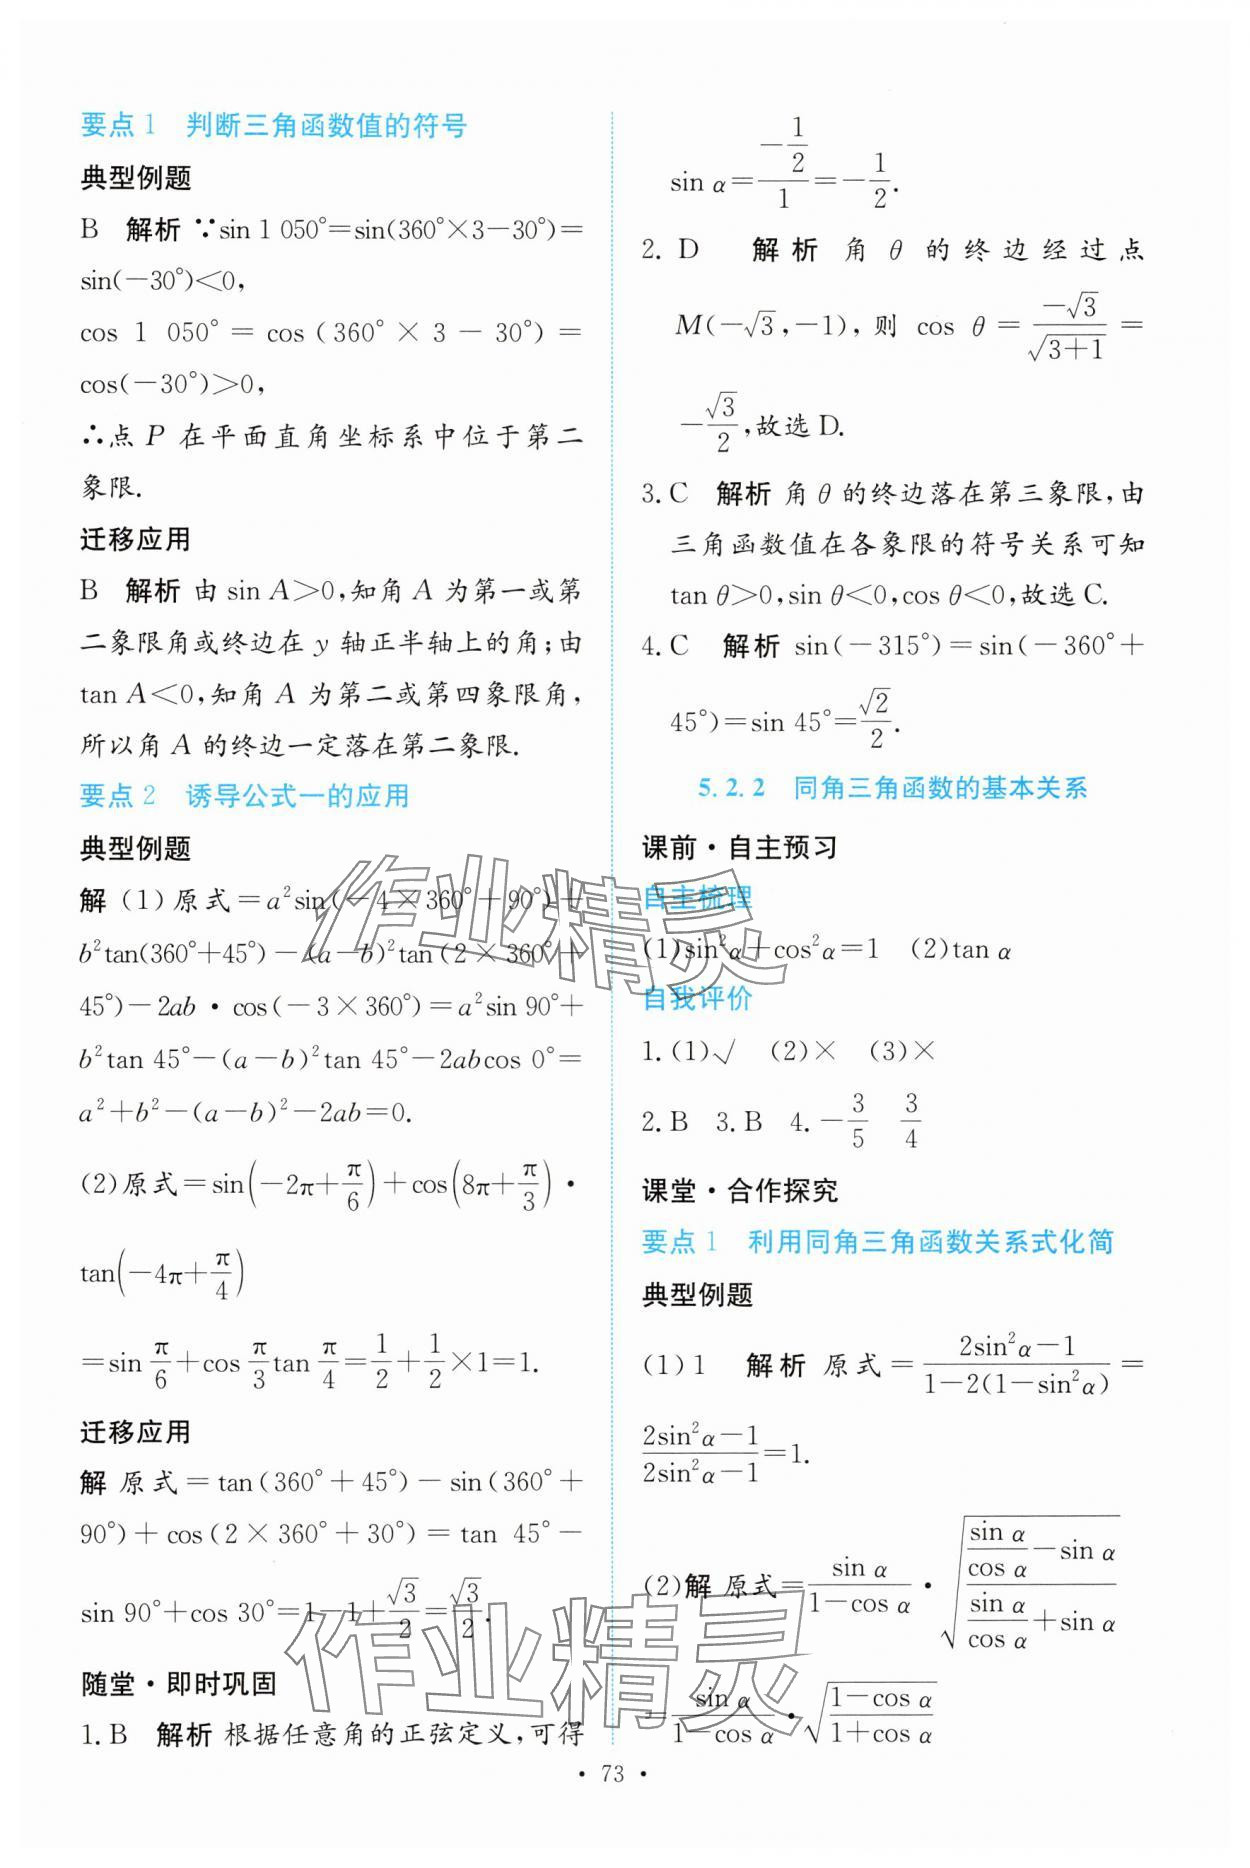 要点1 判断三角函数值的符号
典型例题
B 解析 ∵sin 1 050°=sin(360°×3-30°)=
sin(-30°)<0,
cos 1 050°=cos(360°×3-30°)=
cos(-30°)>0,
∴点 P 在平面直角坐标系中位于第二
象限.
迁移应用
B 解析 由 sin A>0,知角 A 为第一或第
二象限角或终边在 y 轴正半轴上的角;由
tan A<0,知角 A 为第二或第四象限角,
所以角 A 的终边一定落在第二象限.
要点2 诱导公式一的应用
典型例题
解 (1)原式=a²sin(-4×360°+90°)+
b²tan(360°+45°)-(a-b)²tan(2×360°+
45°)-2ab·cos(-3×360°)=a²sin 90°+
b²tan 45°-(a-b)²tan 45°-2abcos 0°=
a²+b²-(a-b)²-2ab=0.
(2)原式=sin(-2π+π/6)+cos(8π+π/3)·
tan(-4π+π/4)
=sin π/6+cos π/3 tan π/4=1/2+1/2×1=1.
迁移应用
解 原式=tan(360°+45°)-sin(360°+
90°)+cos(2×360°+30°)=tan 45°-
sin 90°+cos 30°=1-1+√3/2=√3/2.
随堂·即时巩固
1. B 解析 根据任意角的正弦定义,可得
sin α=(-1/2)/1=-1/2.
2. D 解析 角 θ 的终边经过点
M(-√3,-1),则 cos θ=-√3/√(3+1)=
-√3/2,故选D.
3. C 解析 角 θ 的终边落在第三象限,由
三角函数值在各象限的符号关系可知
tan θ>0,sin θ<0,cos θ<0,故选C.
4. C 解析 sin(-315°)=sin(-360°+
45°)=sin 45°=√2/2.
5.2.2 同角三角函数的基本关系
课前·自主预习
自主梳理
(1)sin²α+cos²α=1 (2)tan α
自我评价
1. (1)√ (2)× (3)×
2. B 3. B 4. -3/5 3/4
课堂·合作探究
要点1 利用同角三角函数关系式化简
典型例题
(1)1 解析 原式=(2sin²α-1)/(1-2(1-sin²α))=
(2sin²α-1)/(2sin²α-1)=1.
(2)解 原式=sin α/(1-cos α)·√((sin α/cos α-sin α)/(sin α/cos α+sin α))
=sin α/(1-cos α)·√((1-cos α)/(1+cos α))
·73·
作业精灵
作业精灵